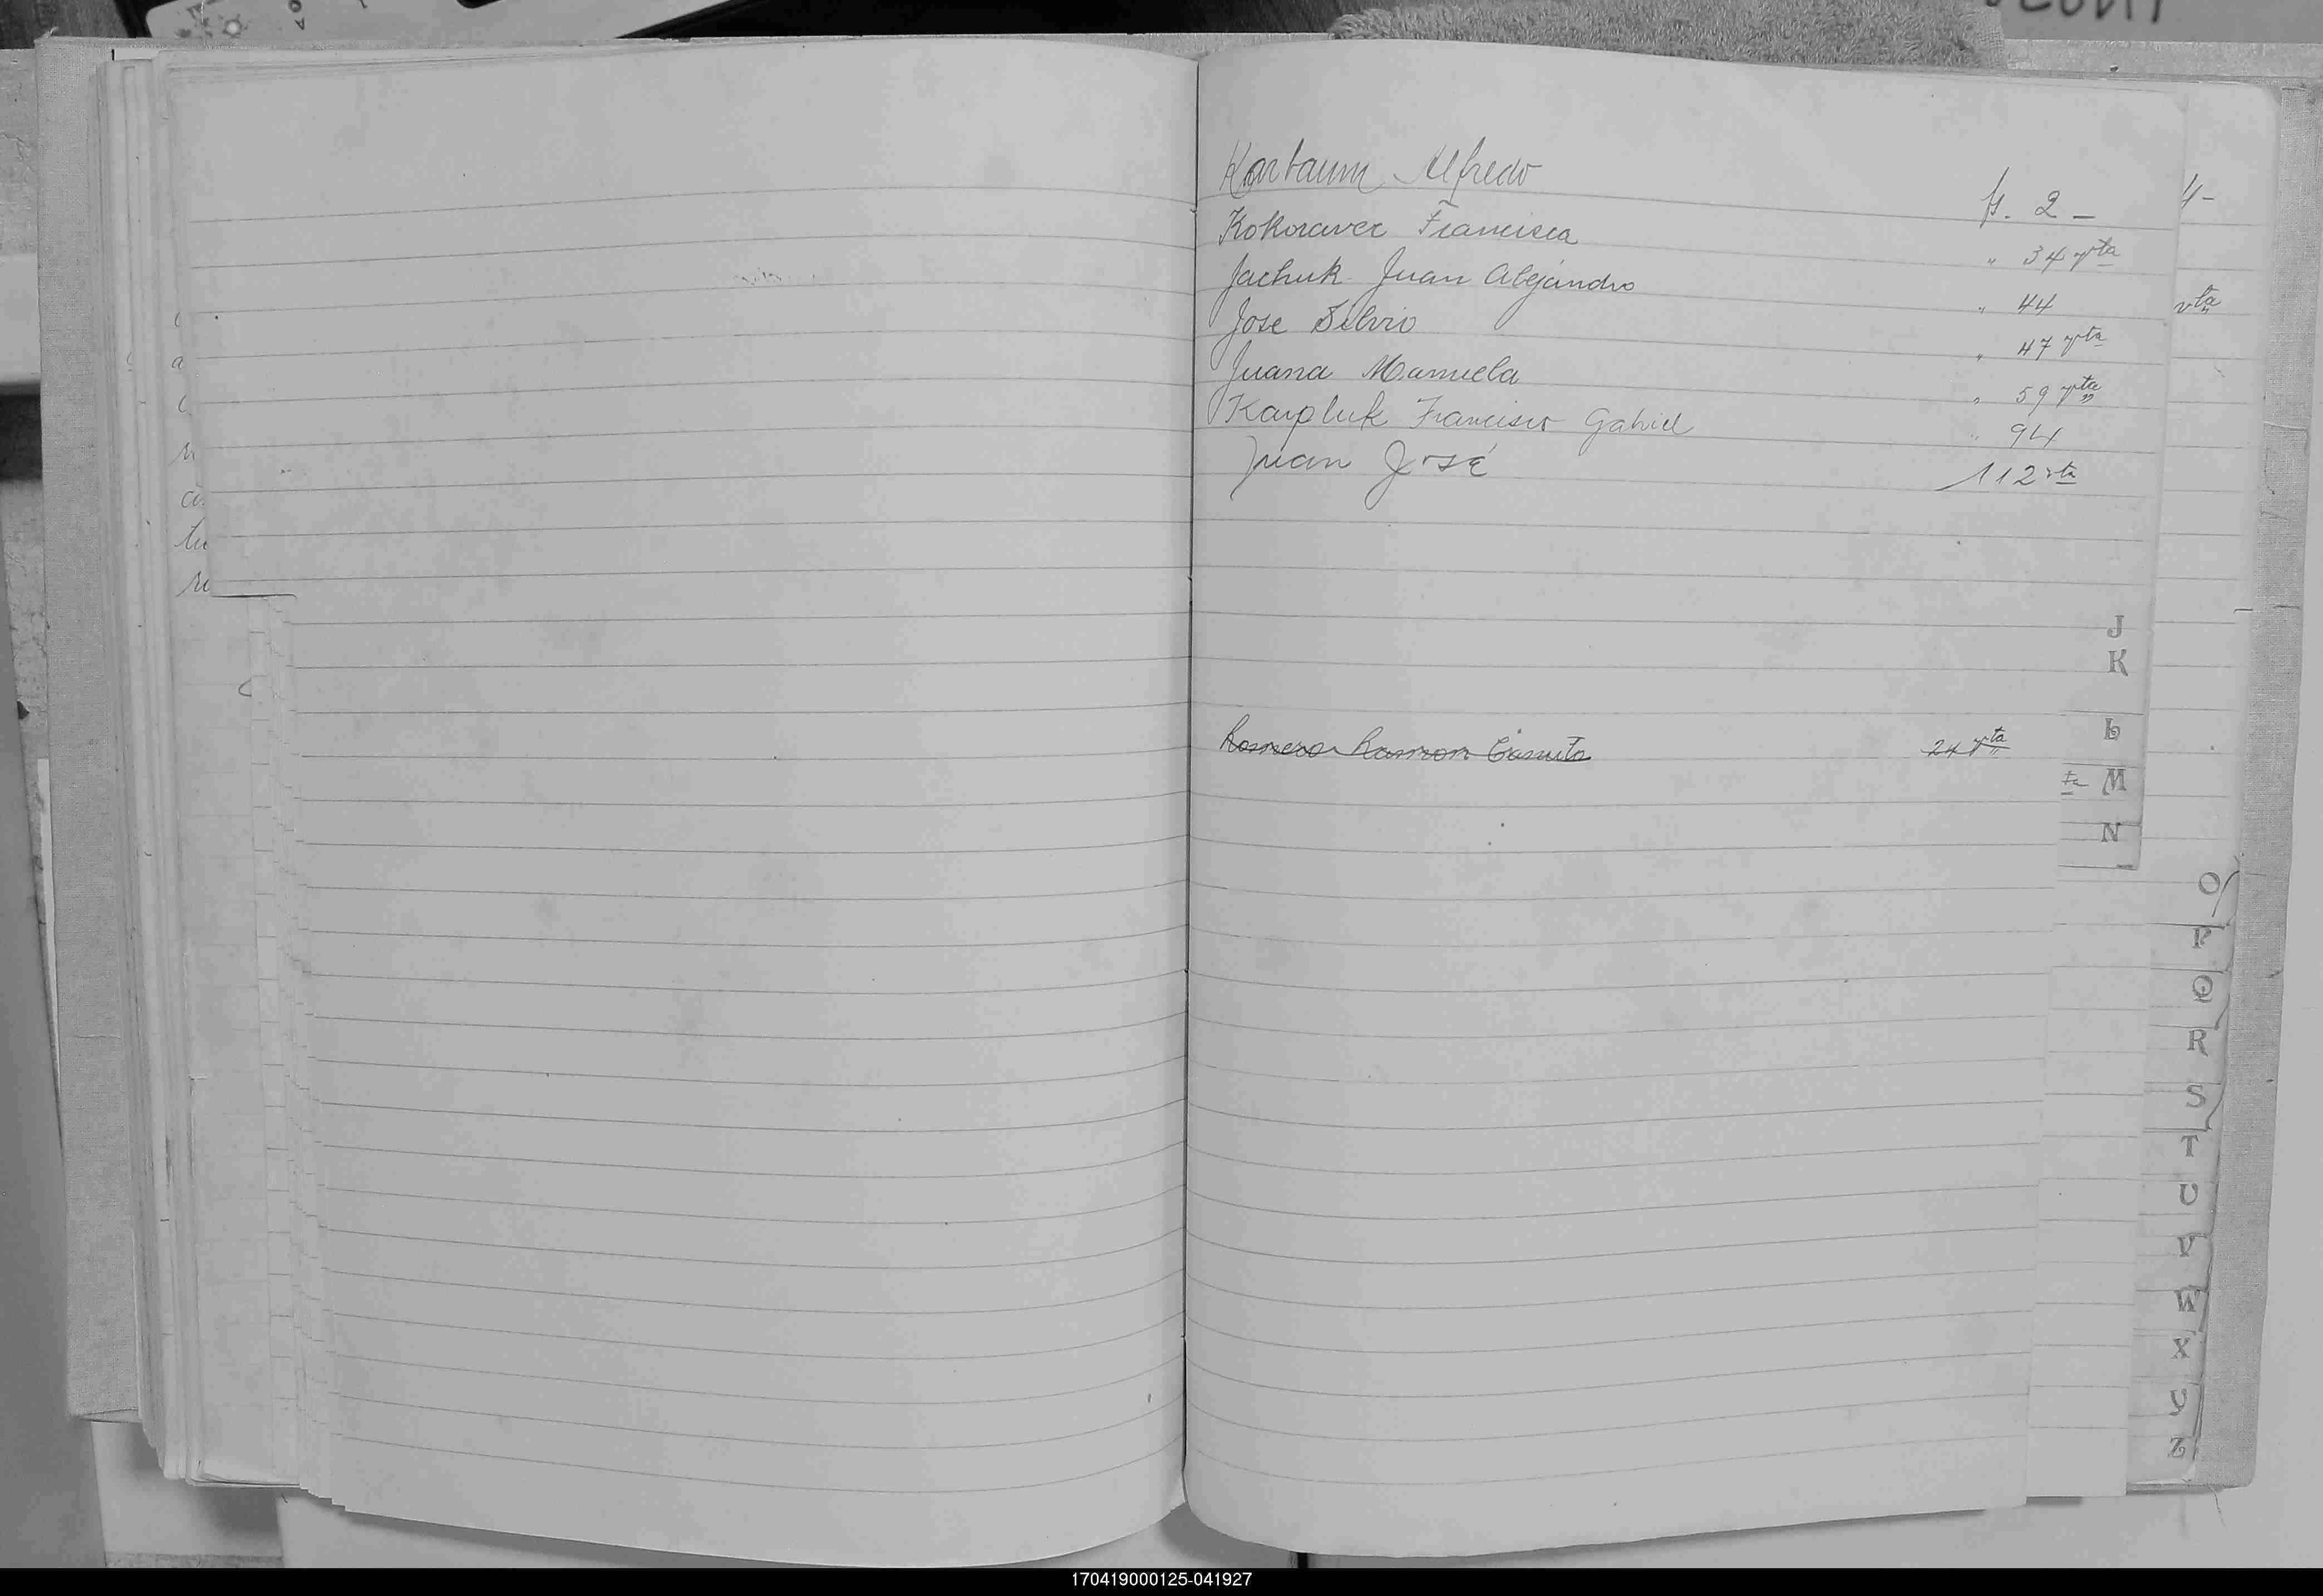 Karbaum Alfredo fs. 2 -
Kokoravec Francisca " 34 vta
Jachuk Juan Alejandro " 44
Jose Silvio " 47 vta
Juana Manuela " 59 vta
Karpluk Francisco Gabriel " 94
Juan José 112 vta
Romero Ramon Canuto 24 vta
vta
J
K
L
M
N
O
P
Q
R
S
T
U
V
W
X
Y
Z
170419000125-041927